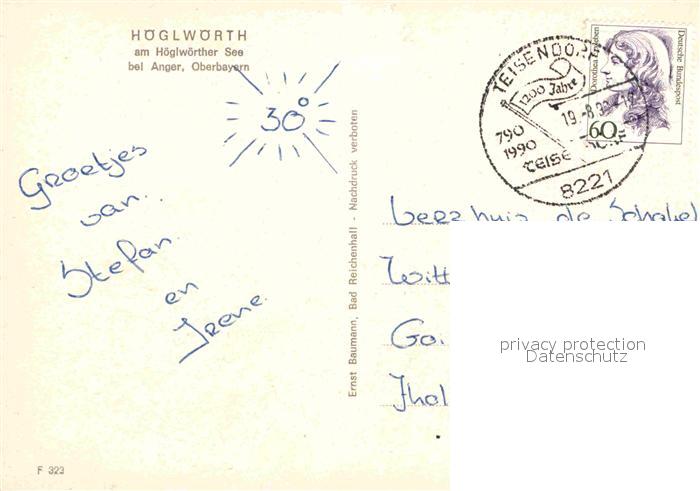 HÖGLWÖRTH
am Höglwörther See
bei Anger, Oberbayern
30°
Groetjes
van
Stefan
en
Irene.
Ernst Baumann, Bad Reichenhall - Nachdruck verboten
F 323
TEISENDORF
1200 Jahre
790
1990
19.-8.
8221
Deutsche Bundespost
Dorothea Erxleben
60
de Schakel
Witt
privacy protection
Datenschutz